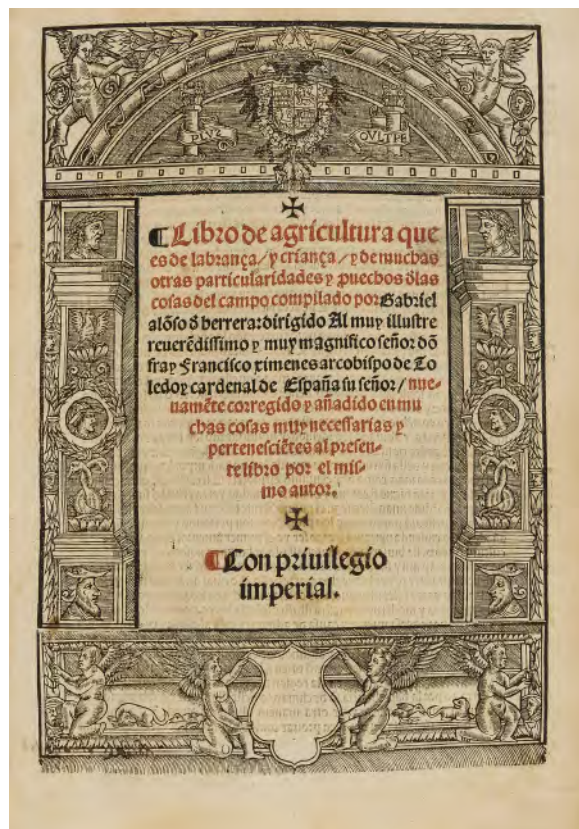 PLVS OVLTRE
✠
¶ Libro de agricultura que
es de labrança / y criança / y de muchas
otras particularidades y ꝓuechos ðlas
cosas del campo compilado por Gabriel
alõso ð herrera: dirigido Al muy illustre
reuerẽdissimo y muy magnifico señor dõ
fray Francisco ximenes arcobispo de To
ledo y cardenal de España su señor / nue-
uamẽte corregido y añadido en mu
chas cosas muy necessarias y
pertenesciẽtes al presen-
te libro por el mis-
mo autor.
✠
¶ Con priuilegio
imperial.